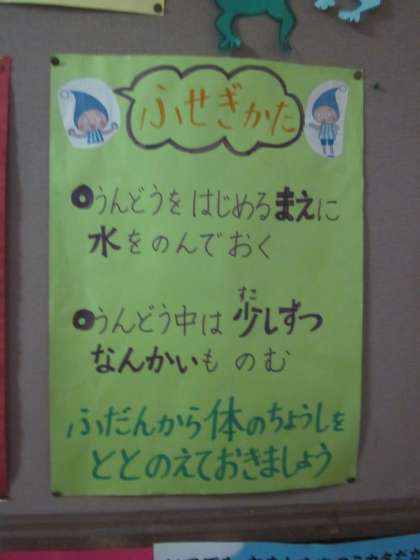 ふせぎかた
うんどうをはじめるまえに
水をのんでおく
うんどう中は少しずつ
すこ
なんかいも のむ
ふだんから体のちょうしを
ととのえておきましょう